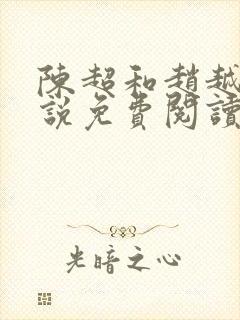 陳超和趙越
說免費閱讀
光暗之心